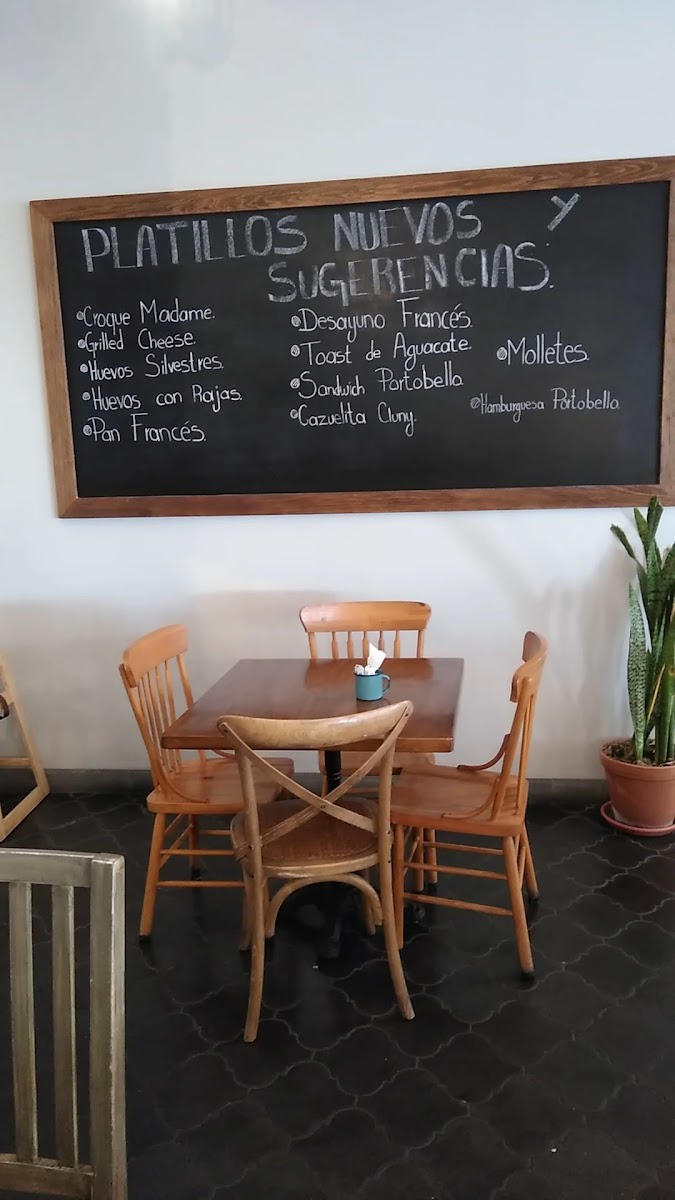 PLATILLOS NUEVOS Y
SUGERENCIAS:
Croque Madame.
Grilled Cheese.
Huevos Silvestres.
Huevos con Rajas.
Pan Francés.
Desayuno Francés.
Toast de Aguacate.
Sandwich Portobello.
Cazuelita Cluny.
Molletes.
Hamburguesa Portobello.